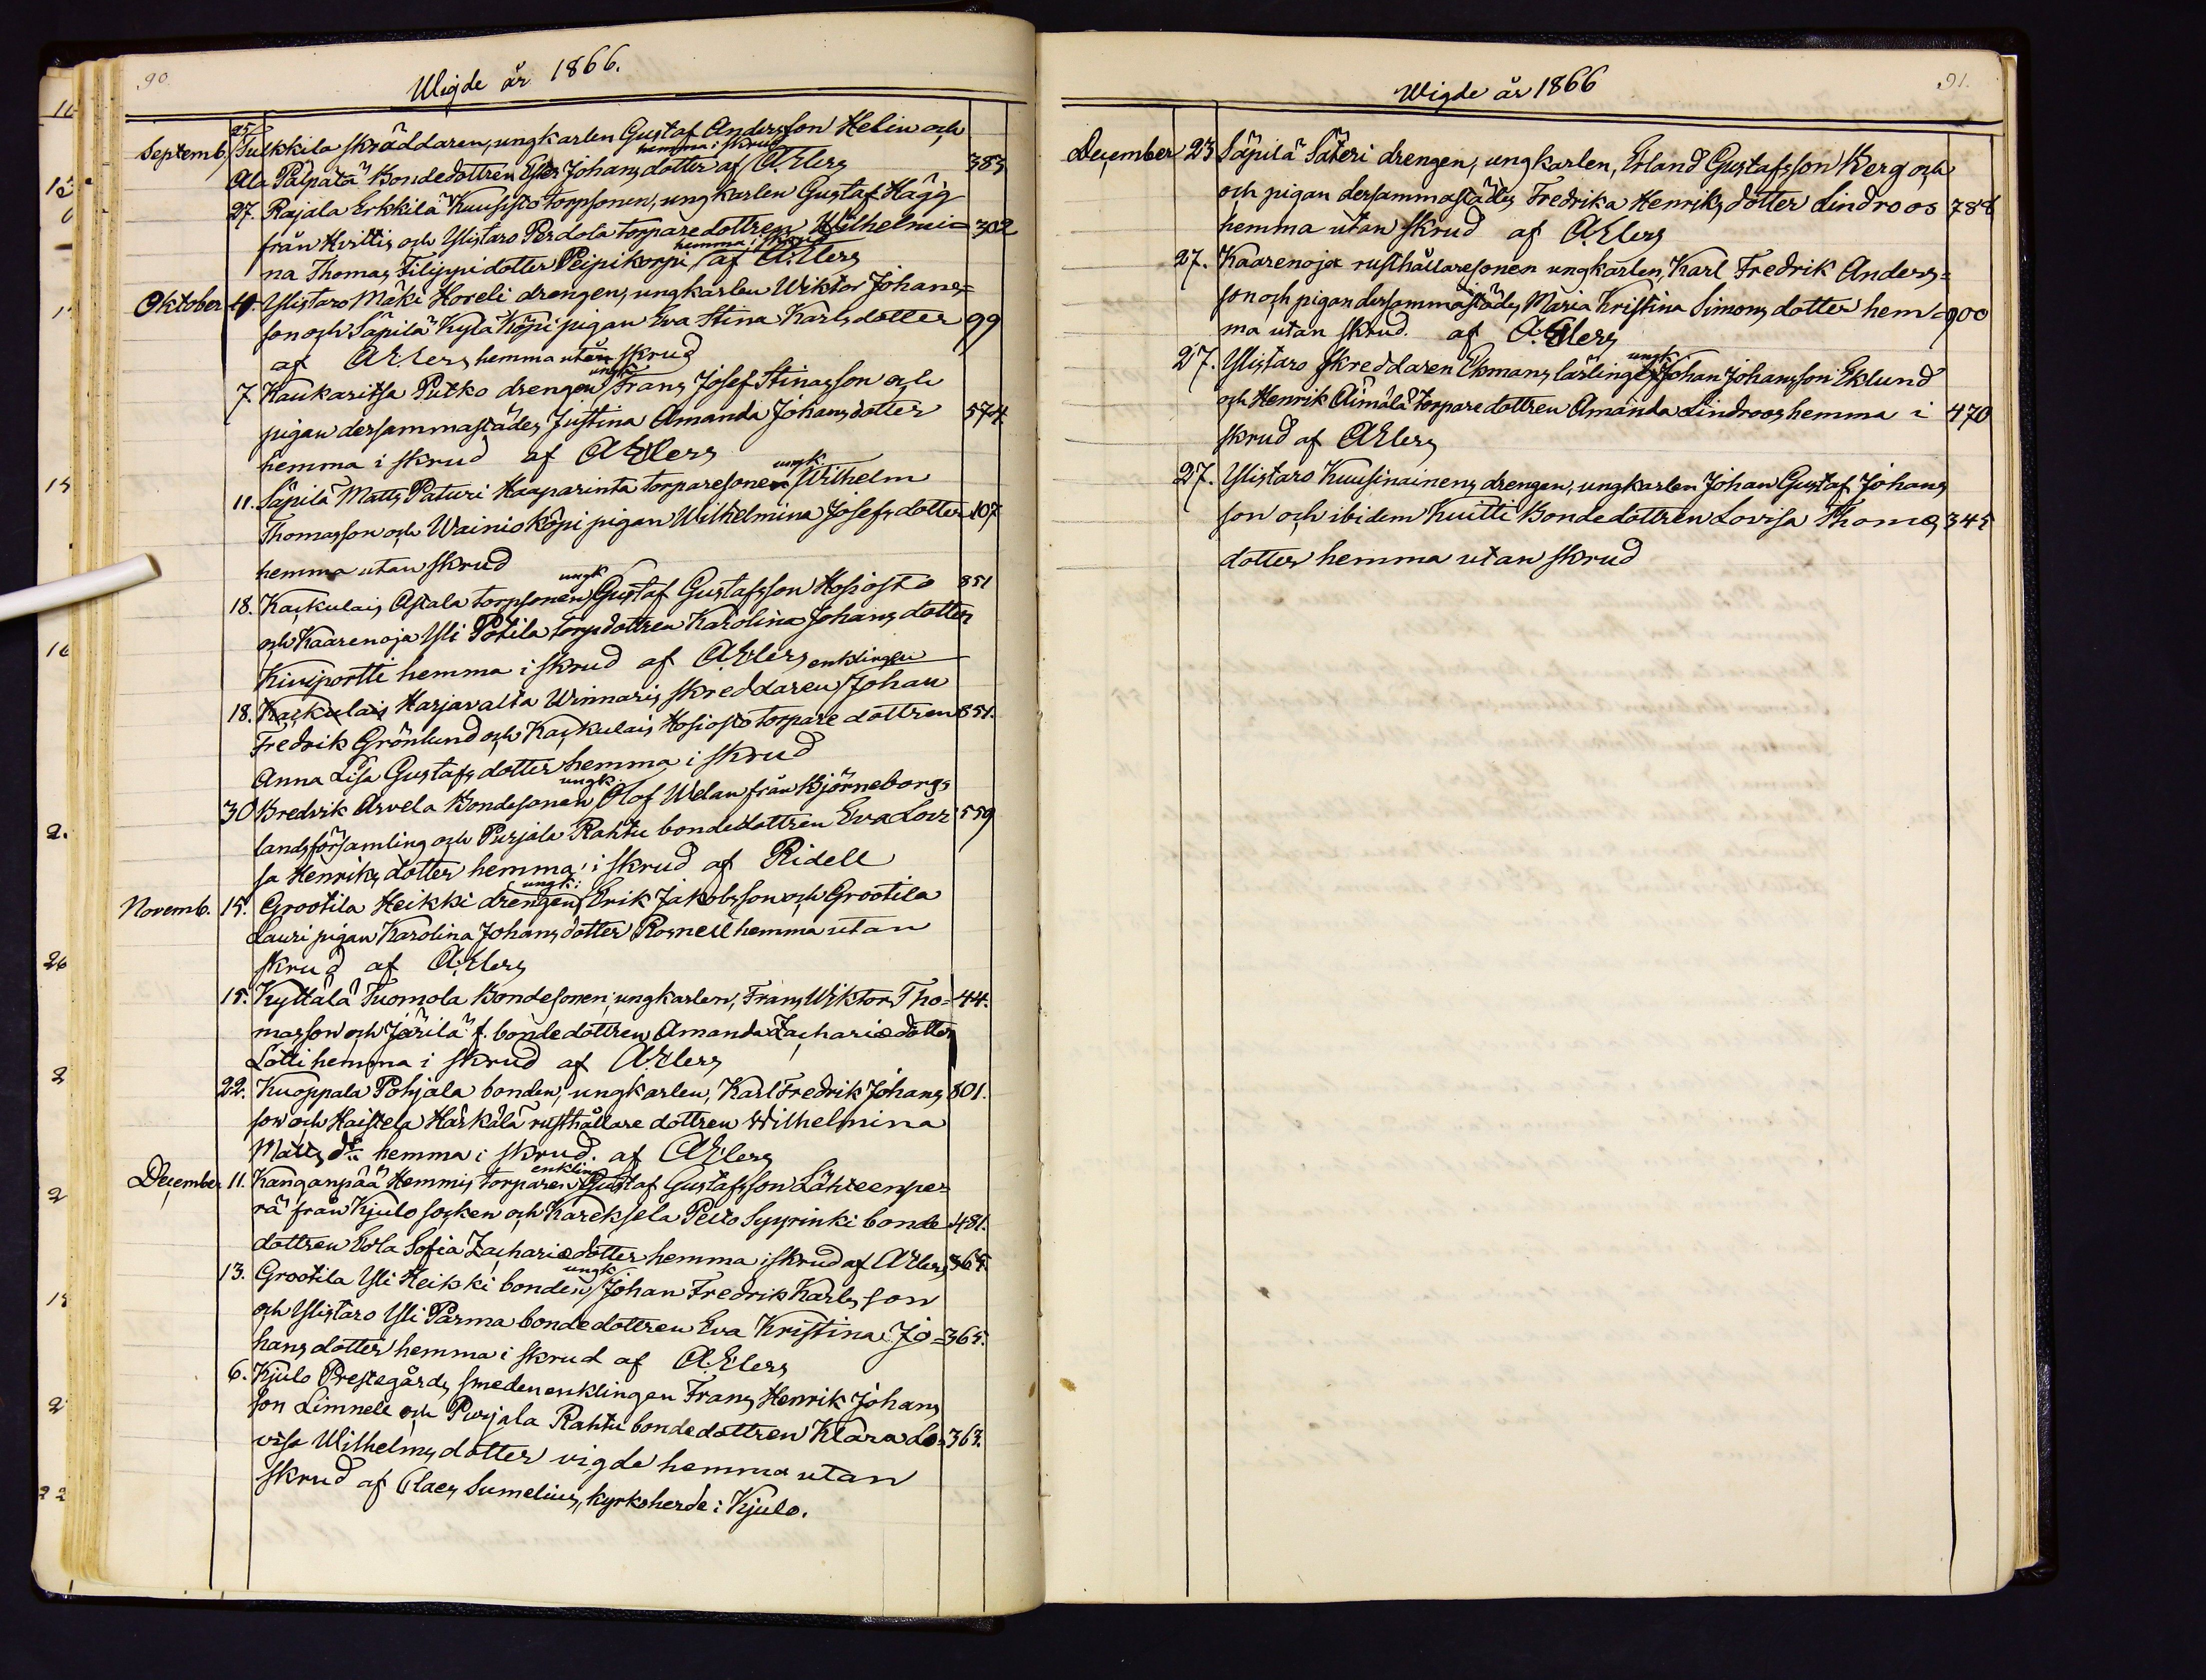 90.
Wigde år 1866.
Septemb. 25. Sulkkila skräddaren, ungkarlen Gustaf Andersson Helin och
Ala Pälpälä Bondedottren Ester Johans dotter hemma i skrud af A. Elers 383
27. Rajala Erkkilä Kuusisto torpsonen, ungkarlen Gustaf Hägg
från Hvittis och Ylistaro Perdola torpare dottren Wilhelmi= 302
na Thomas Filippi dotter Peipikorpi hemma i skrud af A. Elers
Oktober 4. Ylistaro Mäki Horeli drengen, ungkarlen Wiktor Johans=
son och Säpilä Kylä Köpi pigan Eva Stina Karlsdotter 99
af A. Elers hemma utan skrud
7. Kaukaritsa Putko drengen ungk. Frans Josef Stinasson och
pigan dersammastädes Justina Amanda Johansdotter 574
hemma i skrud af A. Elers
11. Säpilä Matts Paturi Haaparinta torparesonen ungk. Wilhelm
Thomasson och Wainio Köpi pigan Wilhelmina Josefsdotter 107
hemma utan skrud
18. Kaskulais Astala torpsonen ungk. Gustaf Gustafsson Hosiosto 851
och Kaarenoja Yli Potila torpdottren Karolina Johans dotter
Kiviportti hemma i skrud af A. Elers
18. Kaskulais Harjavalta Winnaris skreddaren enklingen Johan
Fredrik Grönlund och Kaskulais Hosiosto torpare dottren 851.
Anna Lisa Gustafs dotter hemma i skrud
30 Bredvik Arvela Bondesonen ungk. Olof Welan från Björneborgs
landsförsamling och Purjala Rahtu bondedottren Eva Lovi 559
sa Henriks dotter hemma i skrud af Ridell
Novemb. 15. Grootila Heikki drengen ungk: Erik Jakobsson och Grootila
Lauri pigan Karolina Johans dotter Rosnell hemma utan
skrud af A. Elers
15. Kyttälä Tuomola Bondesonen, ungkarlen, Frans Wiktor Tho= 44.
masson och Järilä f. bondedottren Amanda Zachariædotter
Lötti hemma i skrud af A. Elers
22. Kuoppala Pohjala bonden, ungkarlen, Karl Fredrik Johans 801.
son och Haistela Härkälä rusthållare dottren Wilhelmina
Matts dr. hemma i skrud. af A. Elers
December 11. Kanganpää Hemmis torparen enkling Gustaf Gustafsson Lähteenpe=
rä från Kjulo socken och Kareksela Pelto Syyrinki bonde 481.
dottren Evla Sofia Zachariædotter hemma i skrud af A. Elers 365.
13. Grootila Yli Heikki bonden ungk. Johan Fredrik Karlsson
och Ylistaro Yli Parma bondedottren Eva Kristina Jo= 365.
hans dotter hemma i skrud af A. Elers
6. Kjulo Prestegårds smeden enklingen Frans Henrik Johans
son Limnell och Purjala Rahtu bondedottren Klara Lo= 363.
visa Wilhelms dotter vigde hemma utan
skrud af Claes Sumelius, kyrkoherde i Kjulo.
91.
Wigde år 1866
December 23 Säpilä Säteri drengen, ungkarlen, Erland Gustafsson Berg och
och pigan dersammastädes Fredrika Henriks dotter Lindroos 788
hemma utan skrud af A. Elers
27. Kaarenoja rusthållaresonen ungkarlen, Karl Fredrik Anders=
son och pigan dersammastädes Maria Kristina Simons dotter hem= 900
ma utan skrud. af A. Elers
27. Ylistaro skreddaren Ekmans lärling ungk. Johan Johansson Eklund
och Henrik Äimälä torpare dottren Amanda Lindroos hemma i 470
skrud af A. Elers
27. Ylistaro Kuusinainens drengen, ungkarlen Johan Gustaf Johans
son och ibidem Kuitti Bondedottren Lovisa Thomas 345
dotter hemma utan skrud